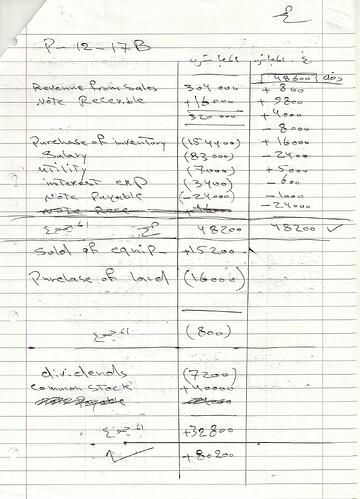 P-12-17B
48600
Revenue from Sales 304000 + 800
Note Recevable +16000 + 9800
320000 + 4000
- 8000
Purchase of inventory (154400) + 16000
Salary (83000) - 2400
utility (7000) + 5000
interest exp (3400) - 600
Note Payable -24000 - 1000
- 24000
المجموع 48200 48200 ✓
Sold of equip- +15200
Purchase of land (16000)
المجموع (800)
dividends (7200)
Common stock +40000
المجموع +32800
+80200